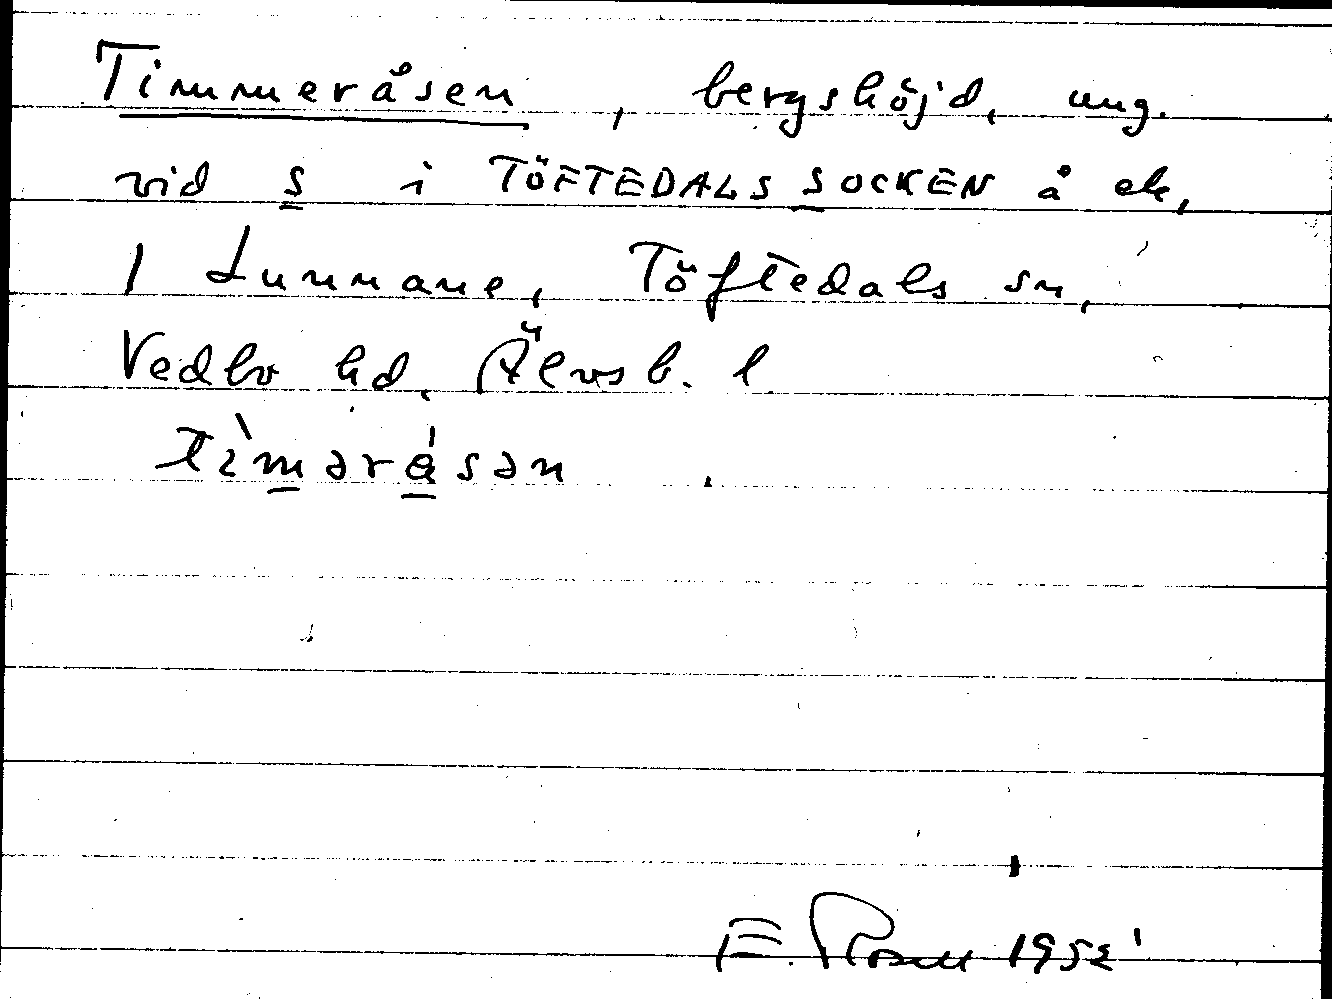 Timmeråsen, bergshöjd, ung.
vid s i TÖFTEDALS SOCKEN å ek,
1 Lunnane, Töftedals sn,
Vedbo hd, Älvsb. l
tìmǝråsǝn.
E. Rosell 1952